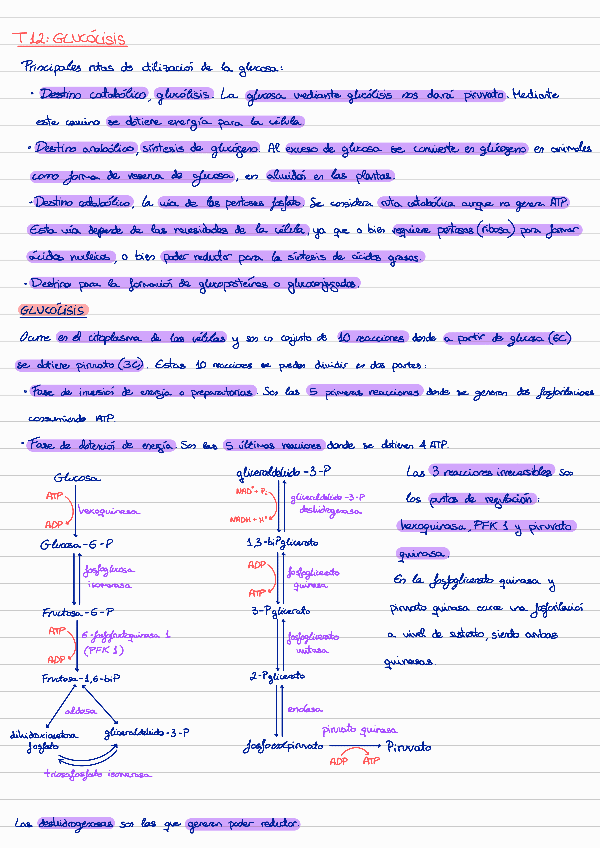 T12: GLUCÓLISIS
Principales rutas de utilización de la glucosa:
· Destino catabólico, glucólisis. La glucosa mediante glucólisis nos dará piruvato. Mediante
este camino se obtiene energía para la célula.
· Destino anabólico, síntesis de glucógeno. Al exceso de glucosa se convierte en glucógeno en animales
como forma de reserva de glucosa, en almidón en las plantas.
· Destino catabólico, la vía de las pentosas fosfato. Se considera ruta catabólica aunque no genera ATP.
Esta vía depende de las necesidades de la célula, ya que o bien requiere pentosas (ribosa) para formar
ácidos nucleicos, o bien poder reductor para la síntesis de ácidos grasos.
· Destino para la formación de glucoproteínas o glucoconjugados.
GLUCÓLISIS
Ocurre en el citoplasma de las células y son un conjunto de 10 reacciones donde a partir de glucosa (6C)
se obtiene piruvato (3C). Estas 10 reacciones se pueden dividir en dos partes:
· Fase de inversión de energía o preparatorias. Son las 5 primeras reacciones donde se generan dos fosforilaciones
consumiendo ATP.
· Fase de obtención de energía. Son las 5 últimas reacciones donde se obtienen 4 ATP.
Glucosa
ATP
hexoquinasa
ADP
Glucosa-6-P
fosfoglucosa
isomerasa
Fructosa-6-P
ATP
6-fosfofructoquinasa 1
(PFK 1)
ADP
Fructosa-1,6-biP
aldosa
dihidroxiacetona
fosfato
gliceraldehído-3-P
triosafosfato isomerasa
gliceraldehído-3-P
NAD⁺ + Pi
gliceraldehído-3-P
deshidrogenasa
NADH + H⁺
1,3-biPglicerato
ADP
fosfoglicerato
quinasa
ATP
3-Pglicerato
fosfoglicerato
mutasa
2-Pglicerato
enolasa
fosfoenolpiruvato
piruvato quinasa
ADP ATP
Piruvato
Las 3 reacciones irreversibles son
los puntos de regulación:
hexoquinasa, PFK 1 y piruvato
quinasa.
En la fosfoglicerato quinasa y
piruvato quinasa ocurre una fosforilación
a nivel de sustrato, siendo ambas
quinasas.
Las deshidrogenasas son las que generan poder reductor.